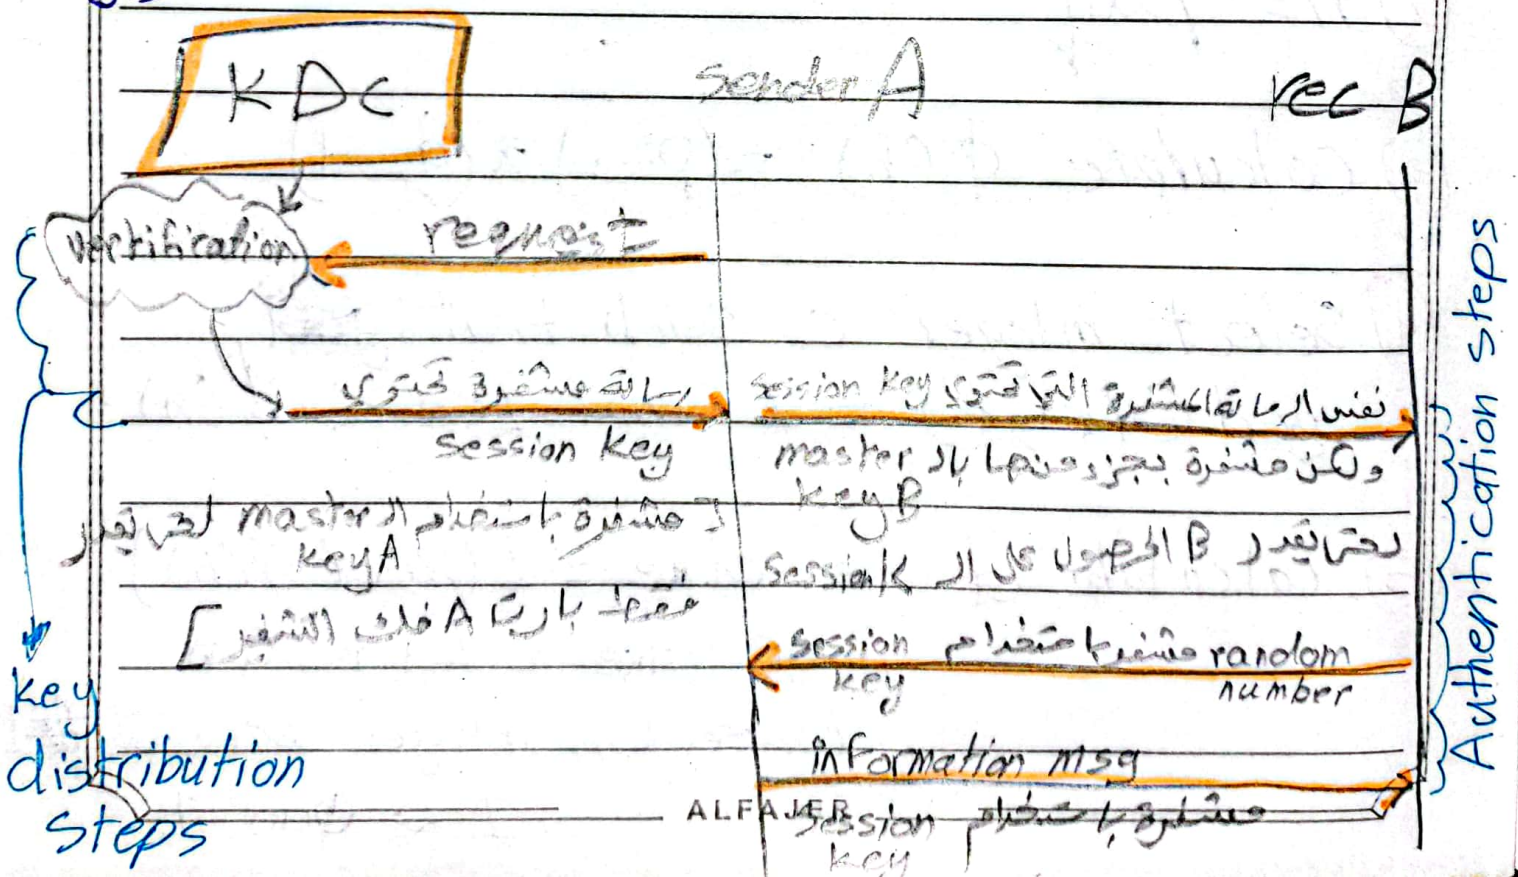 KDC
sender A
rec B
vertification
request
رسالة مشفرة تحتوي
session key
مشفرة باستخدام الـ master لحتى يقدر
key A
فقط بارت A فك التشفير ]
نفس الرسالة المشفرة التي تحتوي session key
ولكن مشفرة بجزء منها بالـ master
key B
لحتى يقدر B الحصول على الـ session k
random مشفر باستخدام session
number key
information msg
مشفرة باستخدام session
key
ALFAJER
key
distribution
steps
Authentication steps